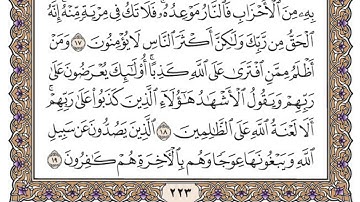 بِهِۦ مِنَ ٱلْأَحْزَابِ فَٱلنَّارُ مَوْعِدُهُۥ ۚ فَلَا تَكُ فِى مِرْيَةٍ مِّنْهُ ۚ إِنَّهُ
ٱلْحَقُّ مِن رَّبِّكَ وَلَٰكِنَّ أَكْثَرَ ٱلنَّاسِ لَا يُؤْمِنُونَ ١٧ وَمَنْ
أَظْلَمُ مِمَّنِ ٱفْتَرَىٰ عَلَى ٱللَّهِ كَذِبًا ۚ أُو۟لَٰٓئِكَ يُعْرَضُونَ عَلَىٰ
رَبِّهِمْ وَيَقُولُ ٱلْأَشْهَٰدُ هَٰٓؤُلَآءِ ٱلَّذِينَ كَذَبُوا۟ عَلَىٰ رَبِّهِمْ ۚ
أَلَا لَعْنَةُ ٱللَّهِ عَلَى ٱلظَّٰلِمِينَ ١٨ ٱلَّذِينَ يَصُدُّونَ عَن سَبِيلِ
ٱللَّهِ وَيَبْغُونَهَا عِوَجًا وَهُم بِٱلْءَاخِرَةِ هُمْ كَٰفِرُونَ ١٩
٢٢٣